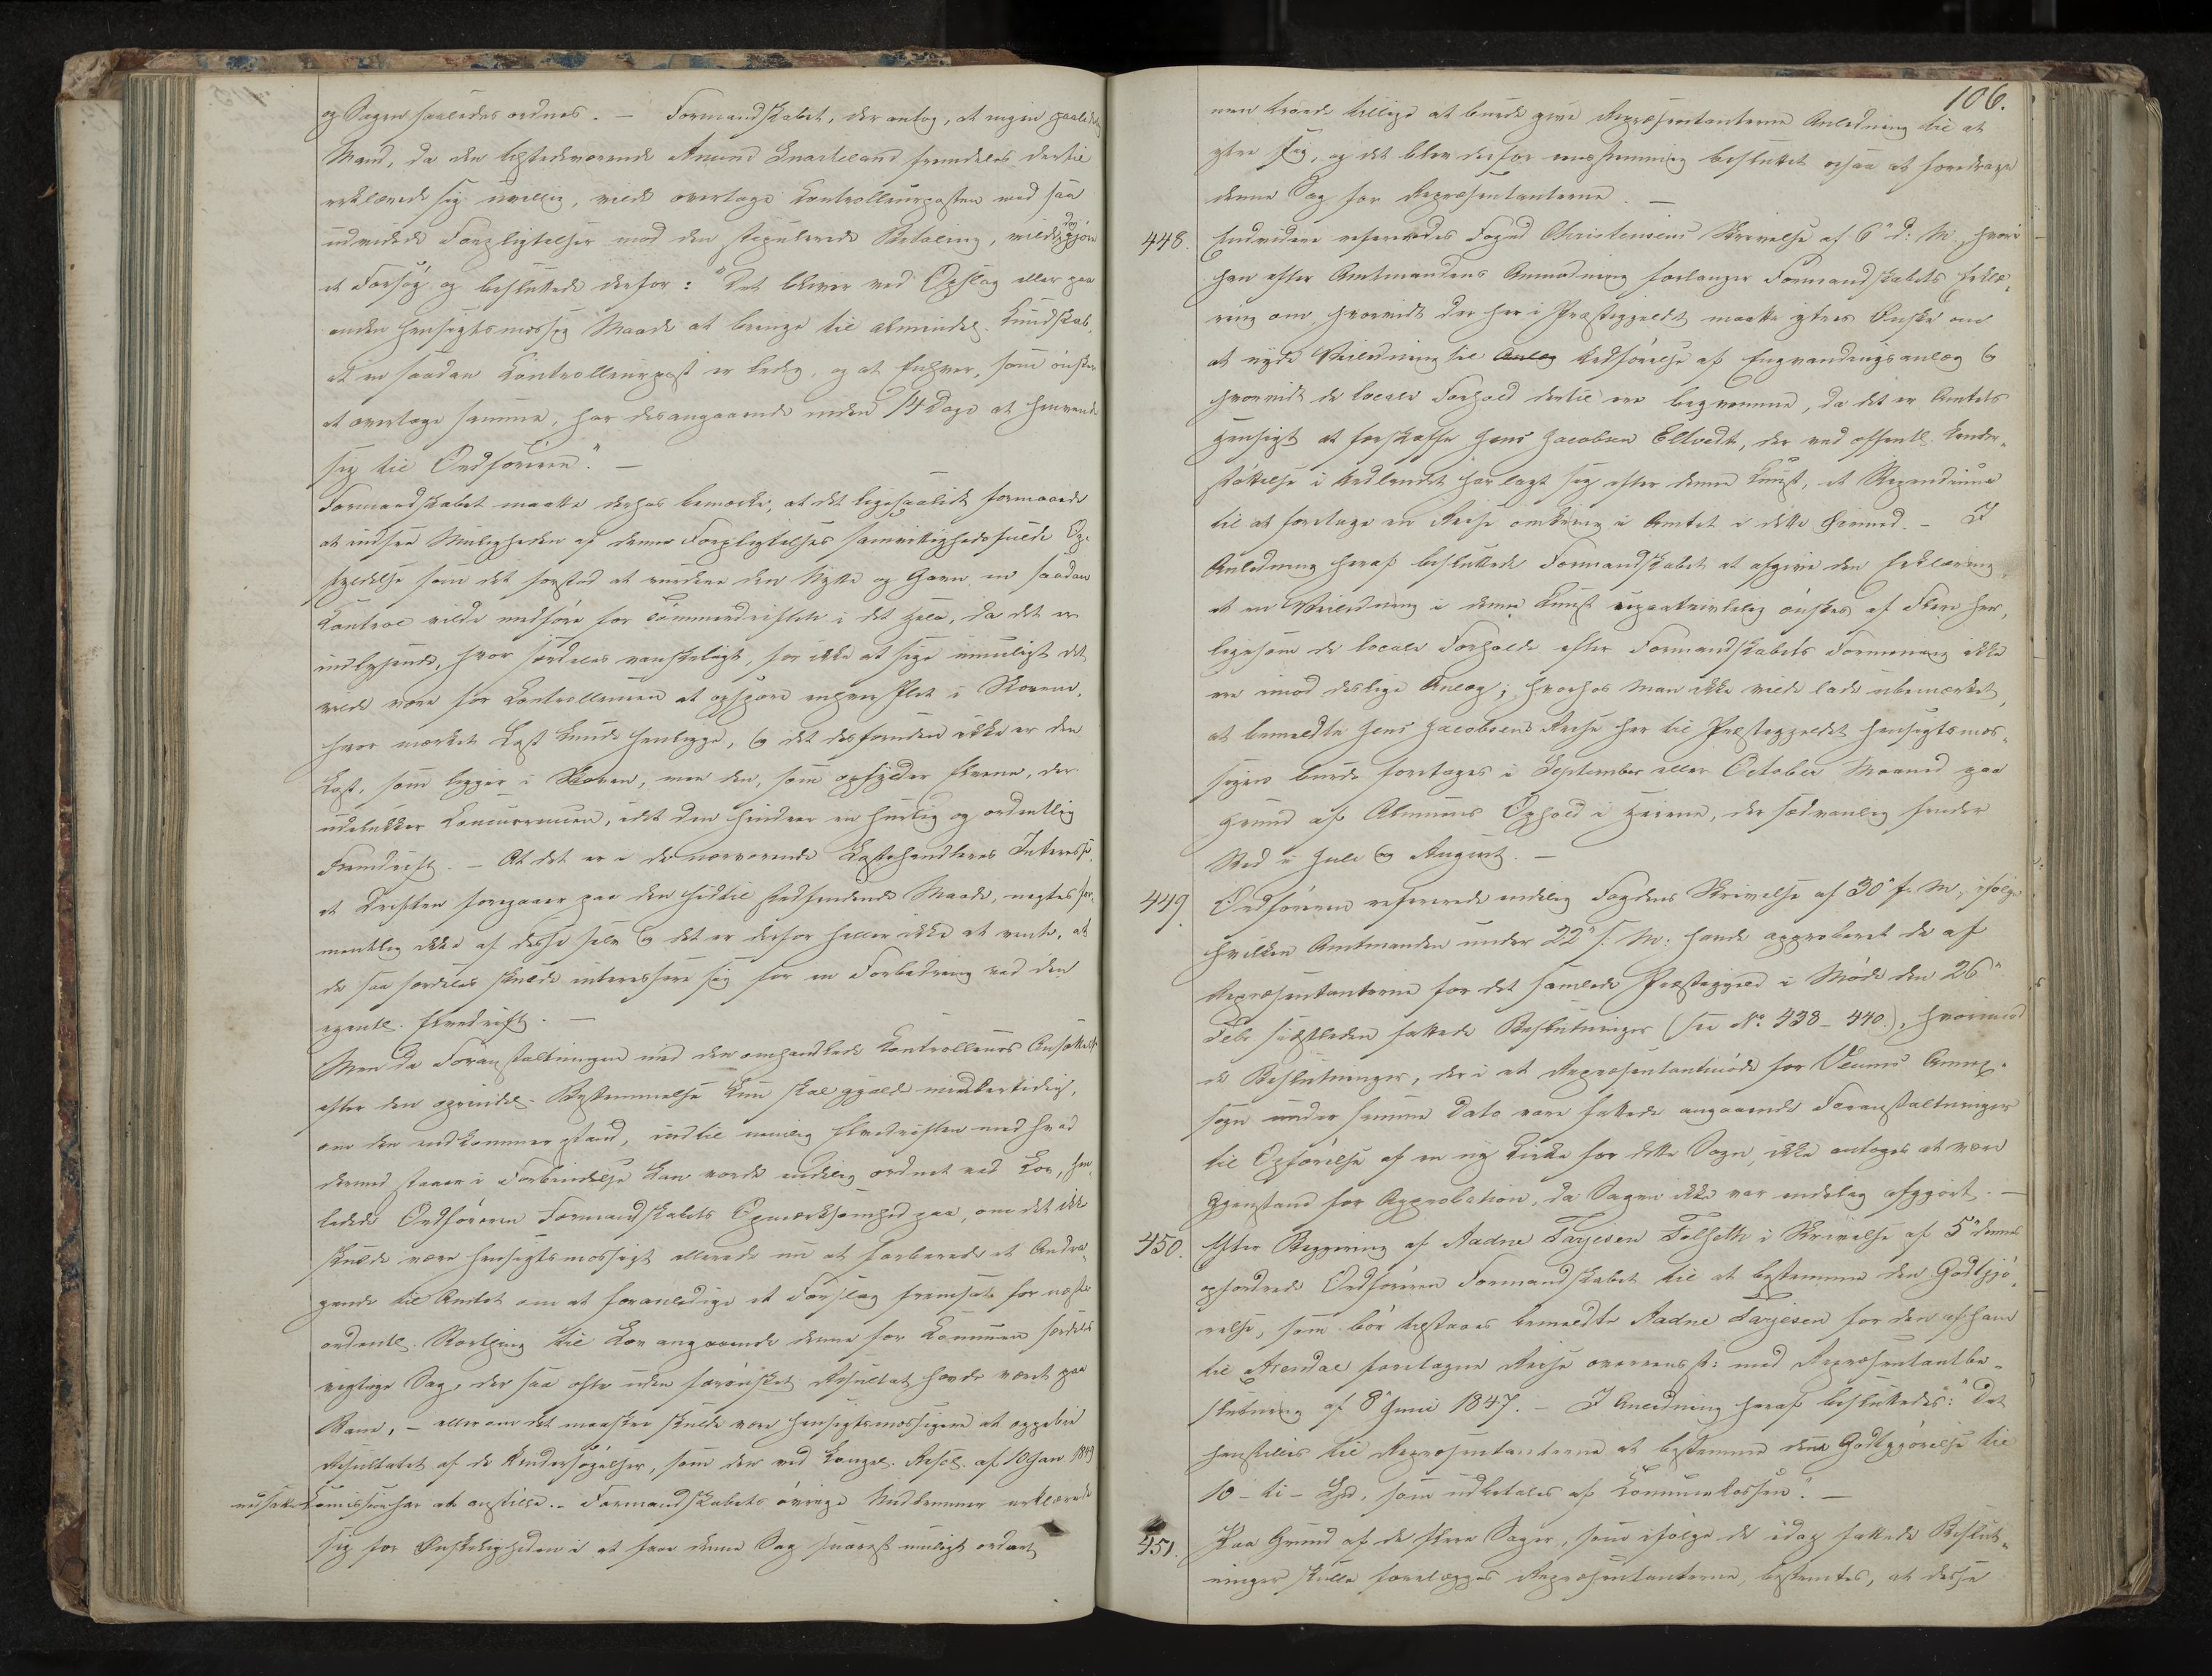 og Sagen saaledes ordnes. — Formandskabet, der antog, at ingen paalidelig
Mand, da den tilstedeværende Amund Gnarteland fremdeles dertil
erklærede sig uvillig, vilde overtage Kontrolleurposten med saa
udvidede Forpligtelser mod den stipulerede Betaling, vilde dog gjøre
et Forsøg og besluttede derfor: "Det bliver ved Opslag eller paa
anden hensigtsmæssig Maade at bringe til almindel. Kundskab,
at en saadan Kontrolleurpost er ledig, og at Enhver, som ønsker
at overtage samme, har desangaaende inden 14 Dage at henvende
sig til Ordføreren." —
Formandskabet maatte derhos bemærke, at det ligesaalidt formaaede
at indsee Muligheden af denne Forpligtelses samvittighedsfulde Op-
fyldelse som det forstod at vurdere den Nytte og Gavn en saadan
Kontrol vilde medføre for Tømmerdriften i det Hele, da det er
indlysende, hvor særdeles vanskeligt, for ikke at sige umuligt det
vilde være for Kontrolleuren at opspore enhver Plet i Skovene,
hvor mærket Last kunde henligge, og det desforuden ikke er den
Last, som ligger i Skoven, men den, som opfylder Elvene, der
udelukker Concurrencen, idet den hindrer en hurtig og ordentlig
Fremdrift. — At det er i de nærværende Lasthandleres Interesse,
at Driften foregaaer paa den hidtil stedfindende Maade, negtes for-
mentlig ikke af disse selv og det er derfor heller ikke at vente, at
de saa særdeles skulde interessere sig for en Forbedring ved den
egentl. Elvedrift. —
Men da Foranstaltningen med den omhandlede Kontrolleurs Ansættelse
efter den oprindel. Bestemmelse kun skal gjælde midlertidig,
om den endkommer istand, indtil nemlig Elvedriften med hvad
dermed staaer i Forbindelse kan vorde endelig ordnet ved Lov, hen-
ledede Ordføreren Formandskabets Opmærksomhed paa, om det ikke
skulde være hensigtsmæssigt allerede nu at forberede et Andra-
gende til Amtet om at foranledige et Forslag fremsat for næste
ordentl. Storthing til Lov angaaende denne for Kommunen særdeles
vigtige Sag, der saa ofte uden forønsket Resultat havde været paa
Bane, — eller om det maaskee skulde være hensigtsmæssigere at oppebie
Resultatet af de Undersøgelser, som den ved Kongel. Resol. af 10 Jan 1849
nedsatte Comission har at anstille. — Formandskabets øvrige Medlemmer erklærede
sig for Ønskeligheden i at faae denne Sag snarest muligt ordnet
106.
men troede tillige at burde give Repræsentanterne Anledning til at
yttre sig, og det blev derfor eenstemmig besluttet ogsaa at foredrage
denne Sag for Repræsentanterne. —
448. Endvidere refereredes Foged Christensens Skrivelse af 6te d: M., hvori
han efter Amtmandens Anmodning forlanger Formandskabets Erklæ-
ring om, hvorvidt der her i Præstegjeldet maatte yttres Ønske om
at nyde Veiledning til Anlæg Udførelse af Engvandingsanlæg og
hvorvidt de locale Forhold dertil ere beqvemme, da det er Amtets
Hensigt at forskaffe Jens Jacobsen Eltvedt, der ved offentl. Under-
støttelse i Udlandet har lagt sig efter denne Kunst, et Stipendium
til at foretage en Reise omkring i Amtet i dette Øiemed. — I
Anledning heraf besluttede Formandskabet at afgive den Erklæring,
at en Veiledning i denne Kunst upaatvivlelig ønskes af Flere her,
ligesom de locale Forholde efter Formandskabets Formening ikke
ere imod deslige Anlæg; hvorhos man ikke vilde lade ubemærket,
at bemeldte Jens Jacobsens Reise her til Præstegjeldet hensigtsmæs-
sigen burde foretages i September eller October Maaned paa
Grund af Almuens Ophold i Heiene, der sædvanlig finder
Sted i Juli og August. —
449. Ordføreren refererede endelig Fogdens Skrivelse af 30te f. M., ifølge
hvilken Amtmanden under 22de s. M: havde approberet de af
Repræsentanterne for det samlede Præstegjeld i Møde den 26de
Febr sidstleden fattede Beslutninger (see No 438-440.), hvorimod
de Beslutninger, der i et Repræsentantmøde for Veums Annex-
sogn under samme Dato vare fattede angaaende Foranstaltninger
til Opførelse af en ny Kirke for dette Sogn, ikke antoges at være
Gjenstand for Approbation, da Sagen ikke var endelig afgjort. —
450. Efter Begjering af Aadne Tarjesen Folseth i Skrivelse af 5te dennes
opfordrede Ordføreren Formandskabet til at bestemme den Godtgjø-
relse, som bør tilstaaes bemeldte Aadne Tarjesen for den af ham
til Arendal foretagne Reise overensst: med Repræsentantbe-
slutning af 8de Juni 1847. — I Anledning heraf besluttedes: "Det
henstilles til Repræsentanterne at bestemme denne Godtgjørelse til
10 - ti - Spd, som udbetales af Kommunekassen." —
451. Paa Grund af de flere Sager, som ifølge de idag fattede Beslut-
ninger skulle forelægges Repræsentanterne, bestemtes, at disse